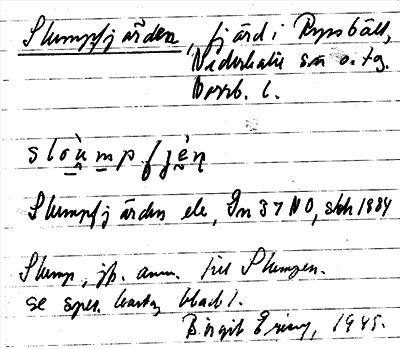 Slumpfjärden, fjärd i Ryssbält,
Nederkalix sn o. tg.
Norrb. l.
slòu̯mpfjè̯ṇ
Slumpfjärden ele, Gn 37 NO, skh 1984
Slump, jfr. anm. till Slumpen.
se spec. karta, blad 1.
Birgit Ericy, 1985.